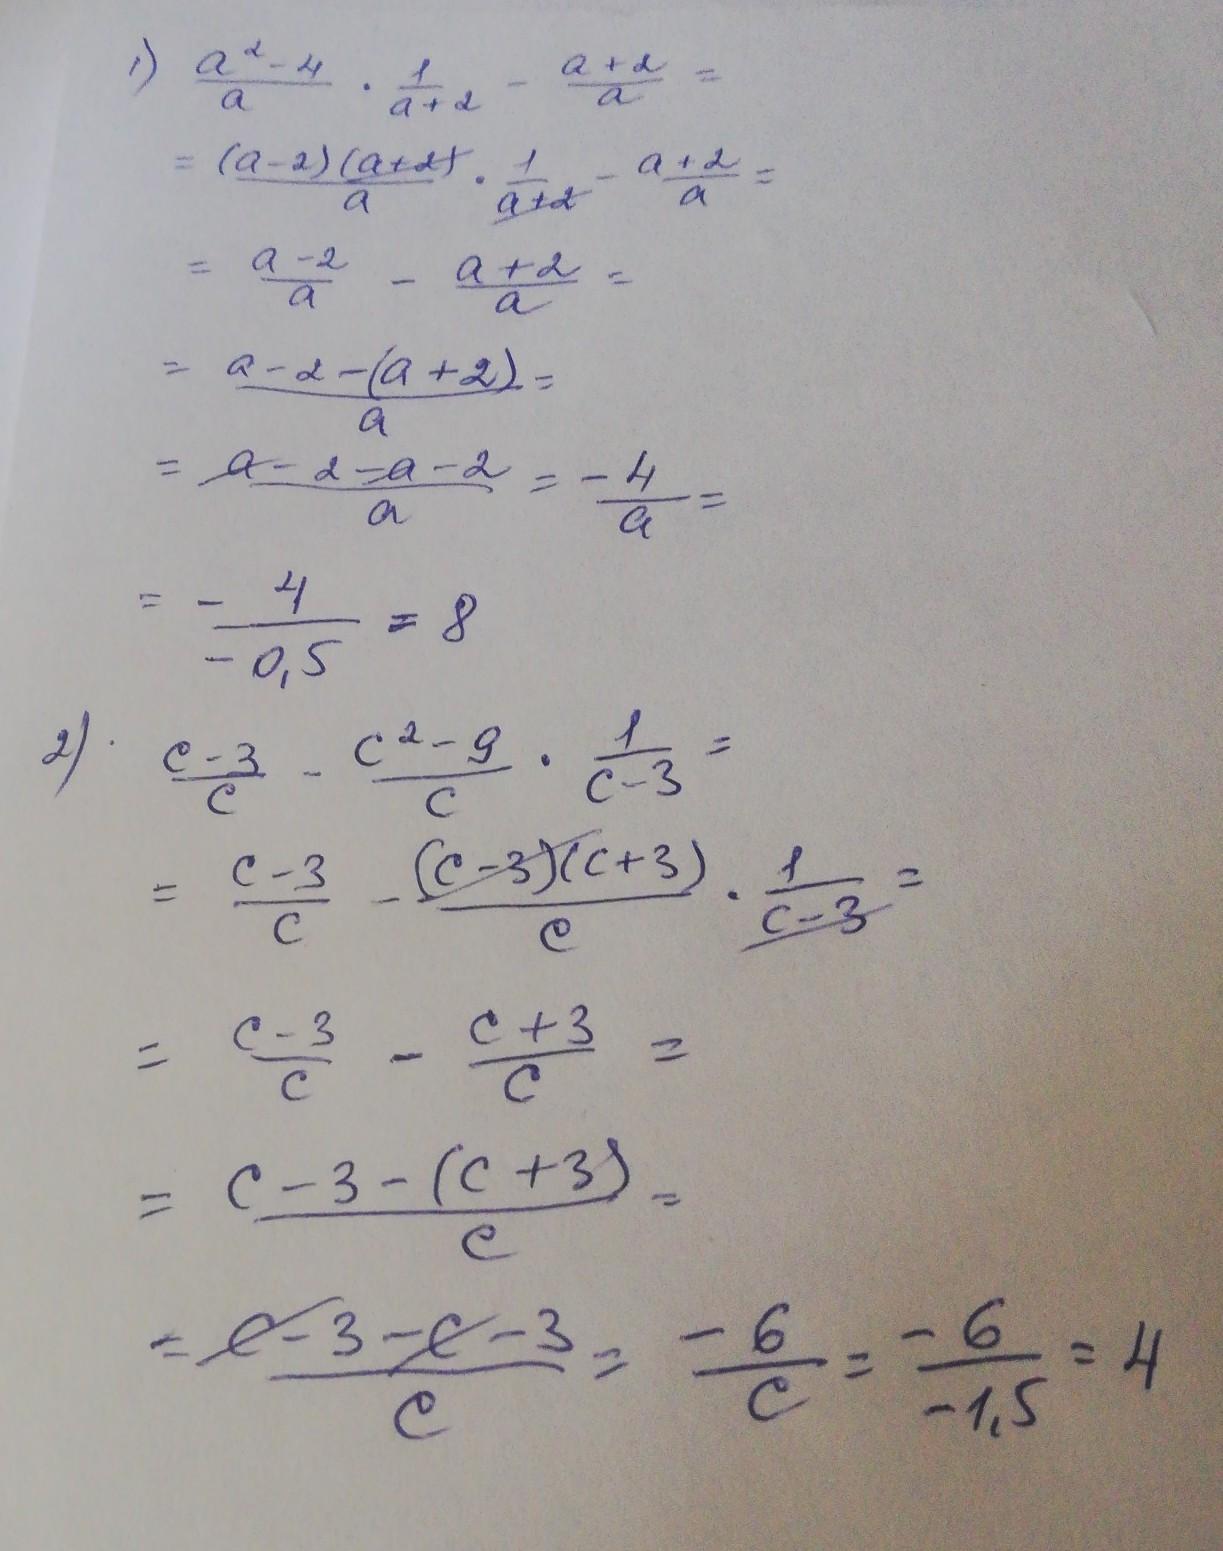 1) \frac{a^2-4}{a} \cdot \frac{1}{a+2} - \frac{a+2}{a} =
= \frac{(a-2)(a+2)}{a} \cdot \frac{1}{a+2} - \frac{a+2}{a} =
= \frac{a-2}{a} - \frac{a+2}{a} =
= \frac{a-2-(a+2)}{a} =
= \frac{a-2-a-2}{a} = \frac{-4}{a} =
= \frac{-4}{-0,5} = 8
2) \frac{c-3}{c} - \frac{c^2-9}{c} \cdot \frac{1}{c-3} =
= \frac{c-3}{c} - \frac{(c-3)(c+3)}{c} \cdot \frac{1}{c-3} =
= \frac{c-3}{c} - \frac{c+3}{c} =
= \frac{c-3-(c+3)}{c} =
= \frac{c-3-c-3}{c} = \frac{-6}{c} = \frac{-6}{-1,5} = 4